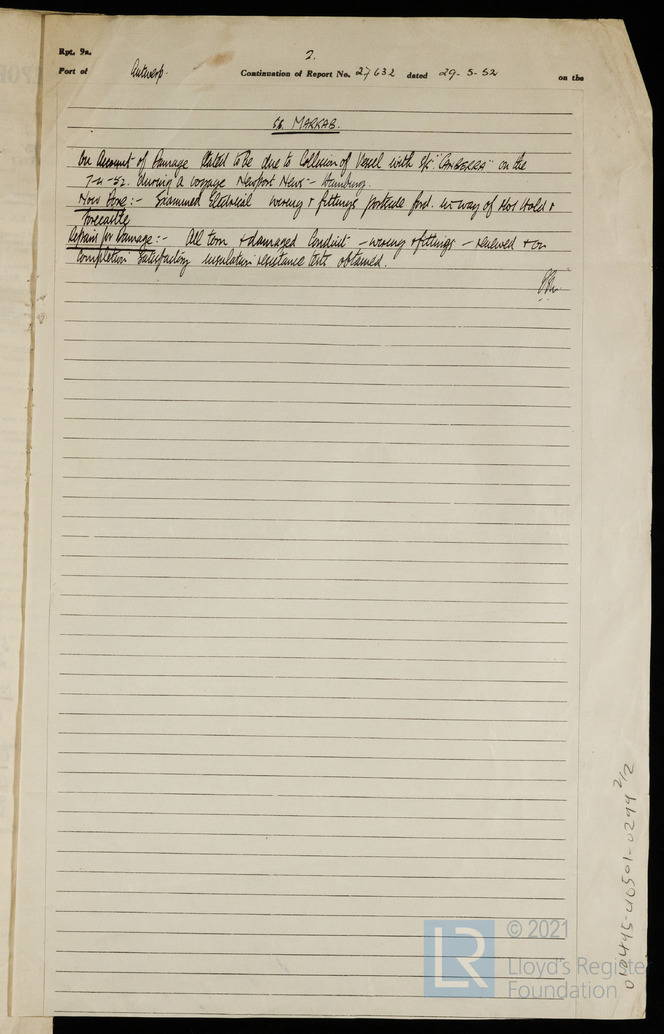 Rpt. 9a.
2.
Port of Antwerp. Continuation of Report No. 27632 dated 29-5-52 on the
SS. MARKAB.
On Account of Damage Stated to be due to Collision of Vessel with S/S "CANBERRA" on the
7-4-52. during a voyage Newport News - Hamburg.
Now Done:- Examined Electrical wiring & fittings portside ford. in way of No1 Hold &
forecastle
Repairs for Damage:- All torn & damaged Conduit - wiring & fittings - renewed & on
completion Satisfactory insulation resistance tests obtained.
010445-010501-0294 2/2
LR
© 2021
Lloyd's Register
Foundation